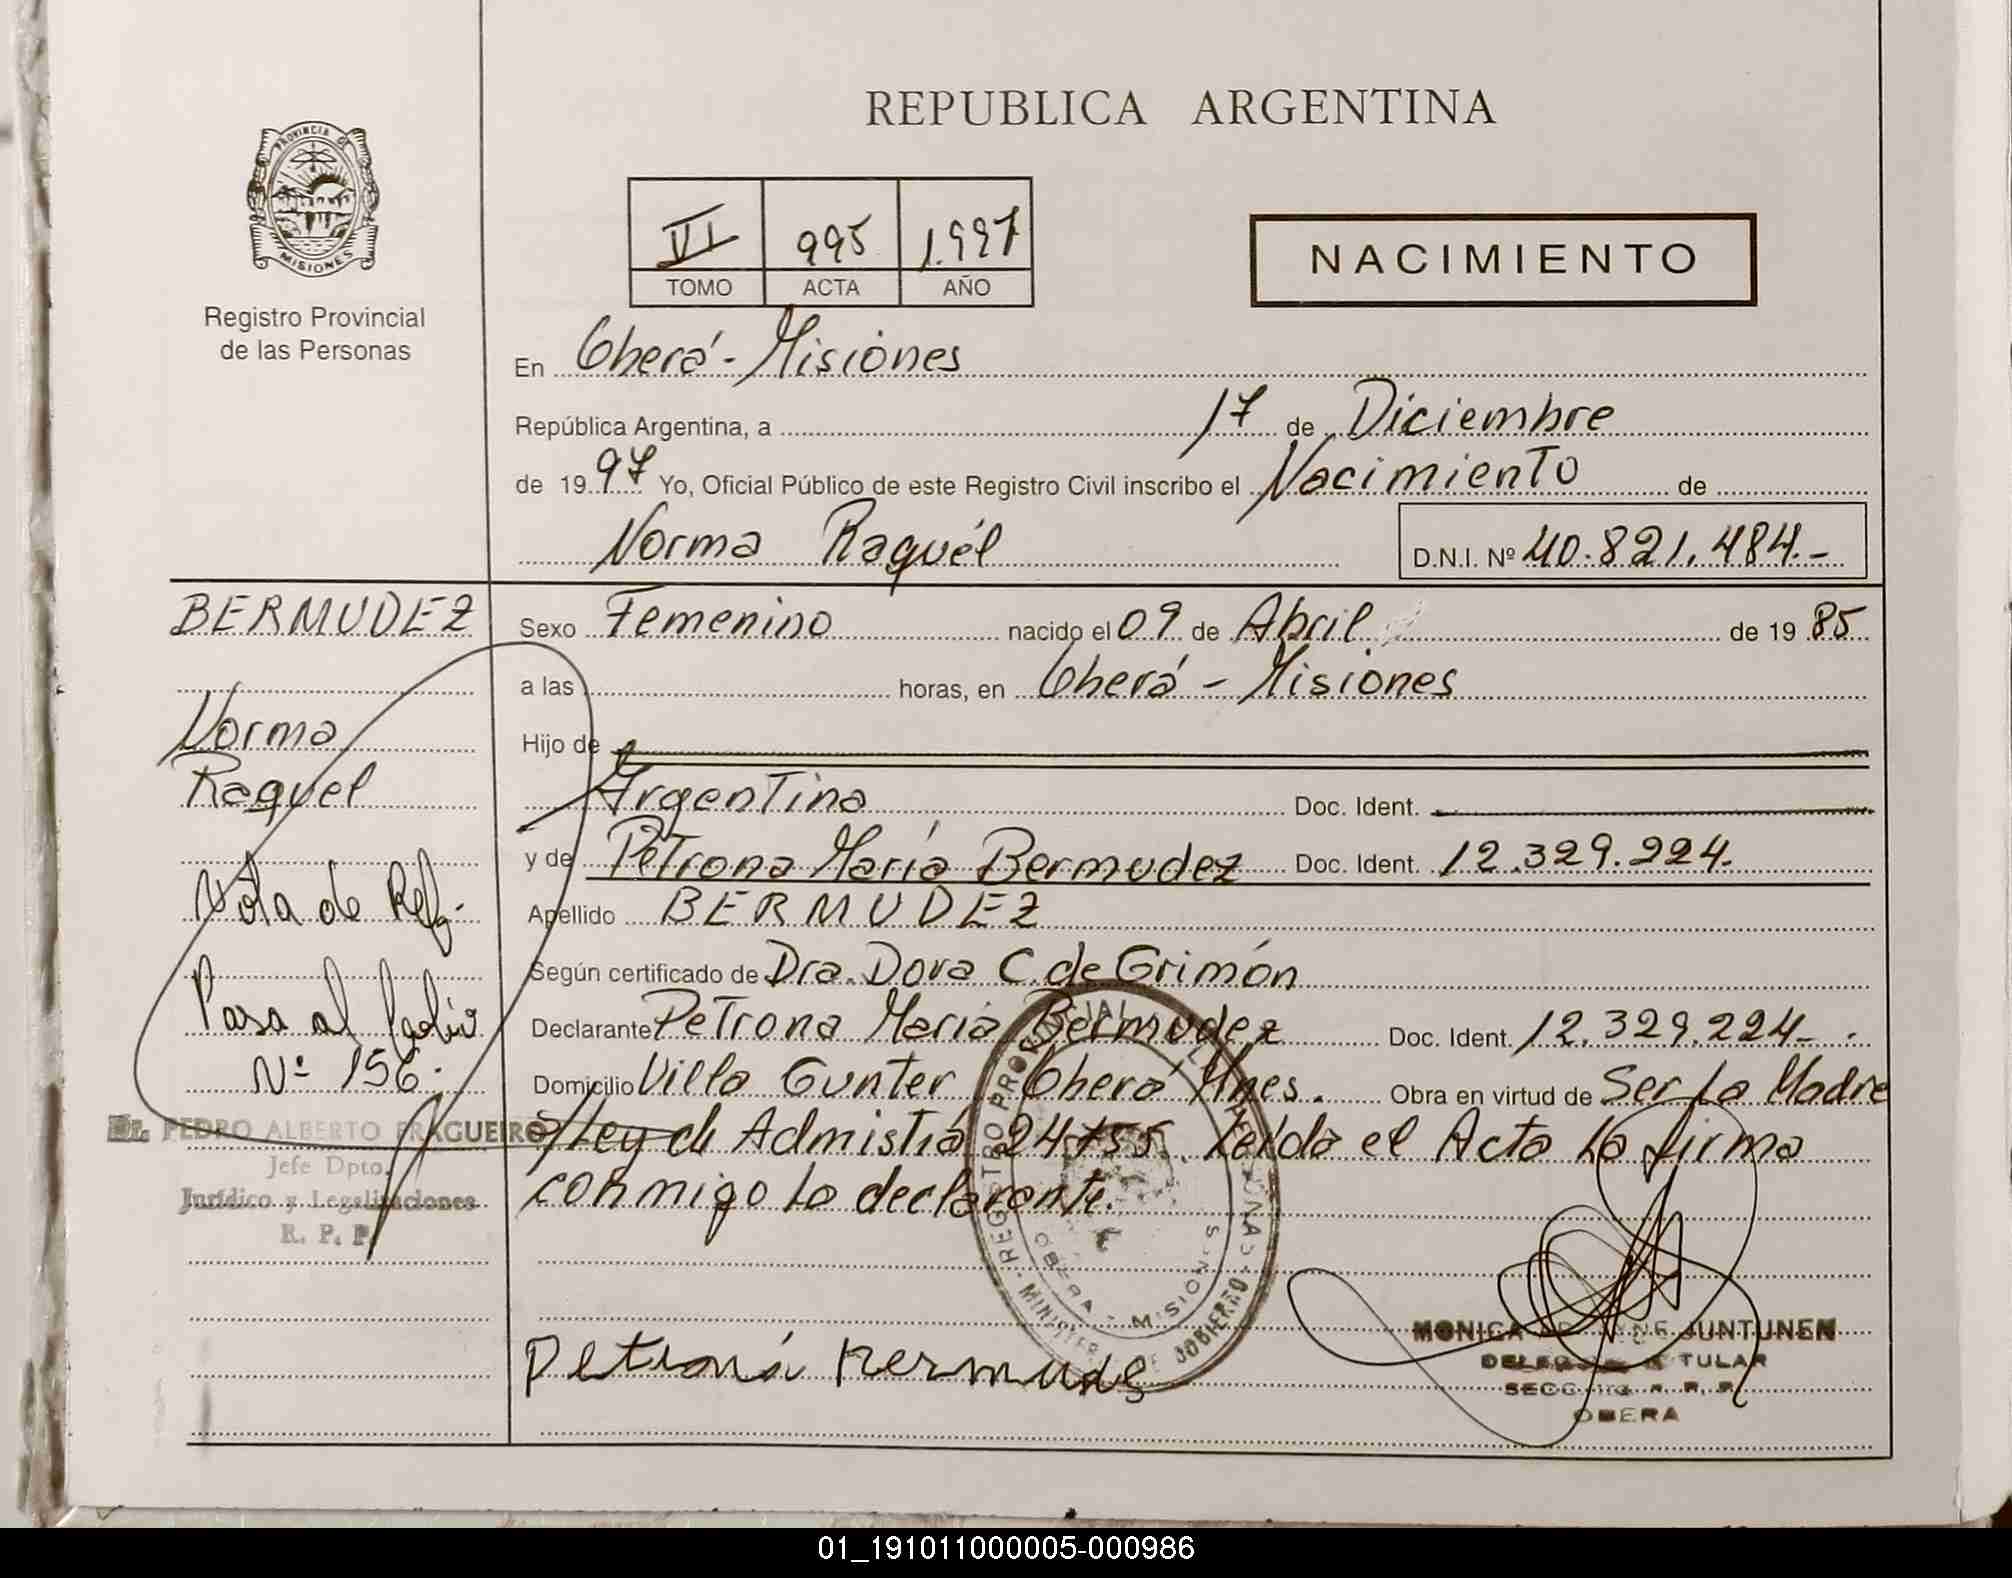 REPUBLICA ARGENTINA
PROVINCIA DE
MISIONES
Registro Provincial
de las Personas
VI 995 1.997
TOMO ACTA AÑO
NACIMIENTO
En Oberá - Misiones
República Argentina, a 17 de Diciembre
de 19 97 Yo, Oficial Público de este Registro Civil inscribo el Nacimiento de
Norma Raquél D.N.I. Nº 40.821.484.-
BERMUDEZ
Norma
Raquel
Nota de Ref.
Pasa al folio
Nº 156.
EL PEDRO ALBERTO FRAGUEIRO
Jefe Dpto.
Jurídico y Legalizaciones
R. P. P.
Sexo Femenino nacido el 09 de Abril de 19 85
a las horas, en Oberá - Misiones
Hijo de
Argentina Doc. Ident.
y de Petrona María Bermudez Doc. Ident. 12.329.224.
Apellido BERMUDEZ
Según certificado de Dra. Dora C. de Grimón
Declarante Petrona Maria Bermudez Doc. Ident. 12.329.224-.
Domicilio Villa Gunter Oberá Mnes. Obra en virtud de Ser La Madre
/Ley de Admistia 24755. Leida el Acta La firma
conmigo la declarante.
REGISTRO PROVINCIAL DE LAS PERSONAS
OBERA - MISIONES
MINISTERIO DE GOBIERNO
Petrona Bermudes
MONICA JUNTUNEN
DELEGADA TITULAR
SECC. R. P. P.
OBERA
01_191011000005-000986